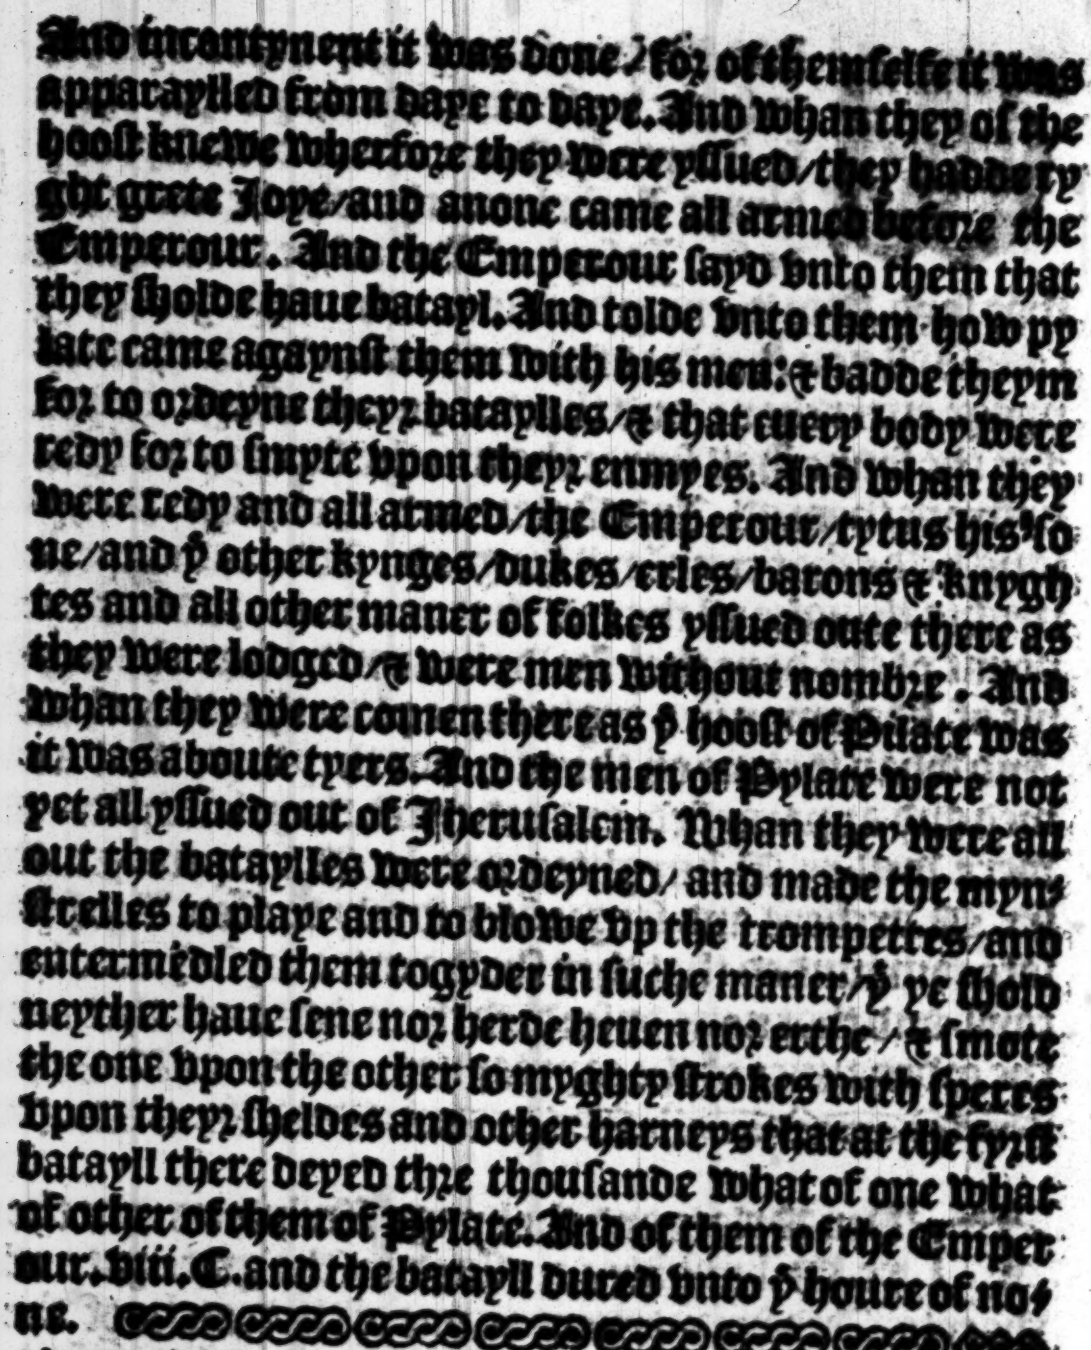 And incontynent it was done / for of themselfe it was
apparaylled from daye to daye. And whan they of the
hoost knewe wherfore they were yssued / they hadde ry
ght grete Joye / and anone came all armed before the
Emperour. And the Emperour sayd vnto them that
they sholde haue batayl. And tolde vnto them how py
late came agaynst them with his men: & badde theym
for to ordeyne theyr bataylles / & that euery body were
redy for to smyte vpon theyr enmyes. And whan they
were redy and all armed / the Emperour / tytus his so
ne / and yͤ other kynges / dukes / erles / barons & knygh
tes and all other maner of folkes yssued oute there as
they were lodged / & were men without nombre. And
whan they were comen there as yͤ hoost of Pilate was
it was aboute tyers. And the men of Pylate were not
yet all yssued out of Jherusalem. Whan they were all
out the bataylles were ordeyned / and made the myn⸗
strelles to playe and to blowe vp the trompettes / and
entermedled them togyder in suche maner / yͭ ye shold
neyther haue sene nor herde heuen nor erthe / & smote
the one vpon the other so myghty strokes with speres
vpon theyr sheldes and other harneys that at the fyrst
batayll there deyed thre thousande what of one what
of other of them of Pylate. And of them of the Emper
our. viii. C. and the batayll dured vnto yͤ houre of no⸗
ne.